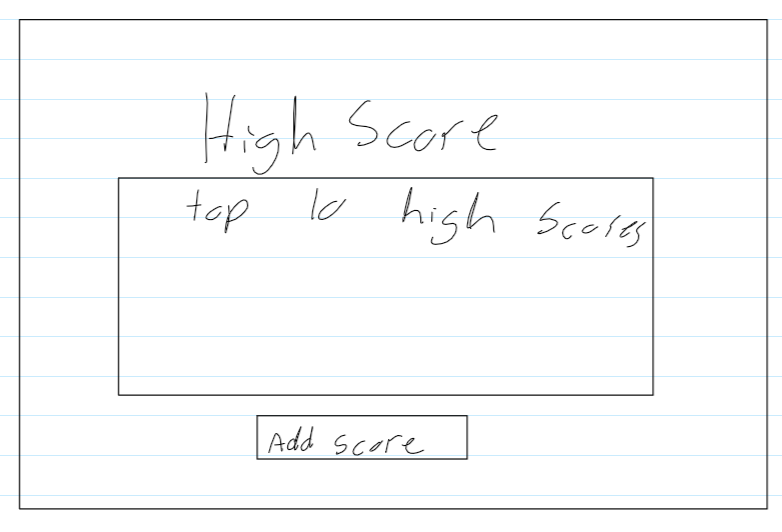 High Score
top 10 high scores
Add score